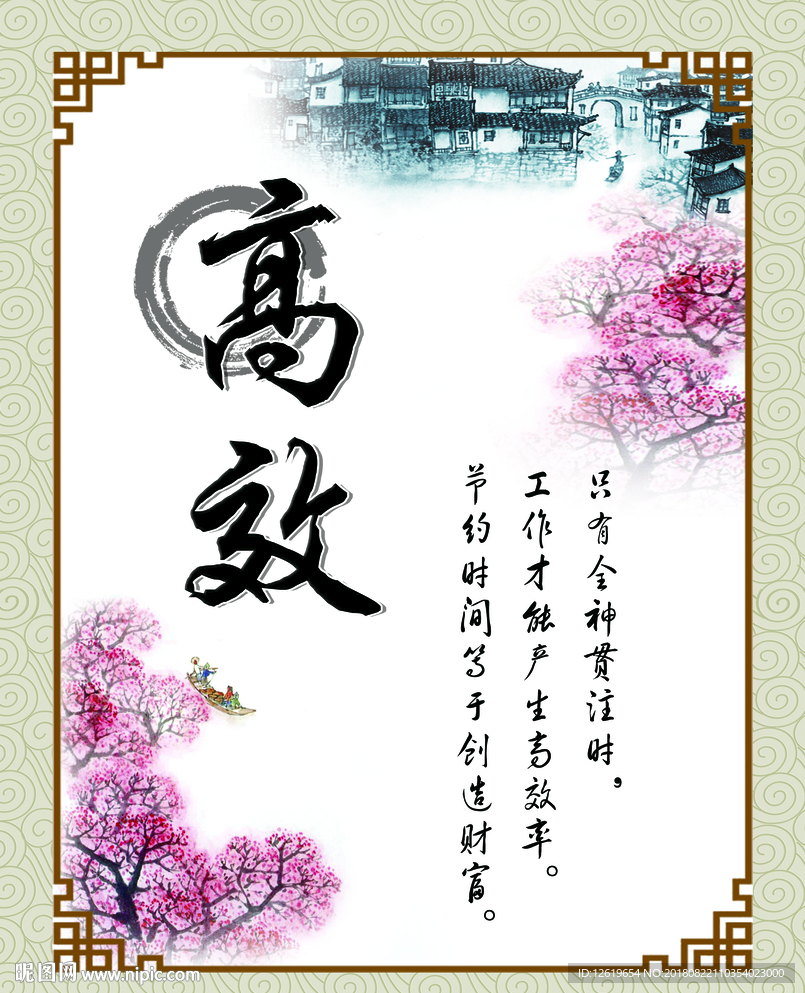 高效
只有全神贯注时，
工作才能产生高效率。
节约时间等于创造财富。
昵图网 www.nipic.com
ID:12619654 NO:20180822110354023000